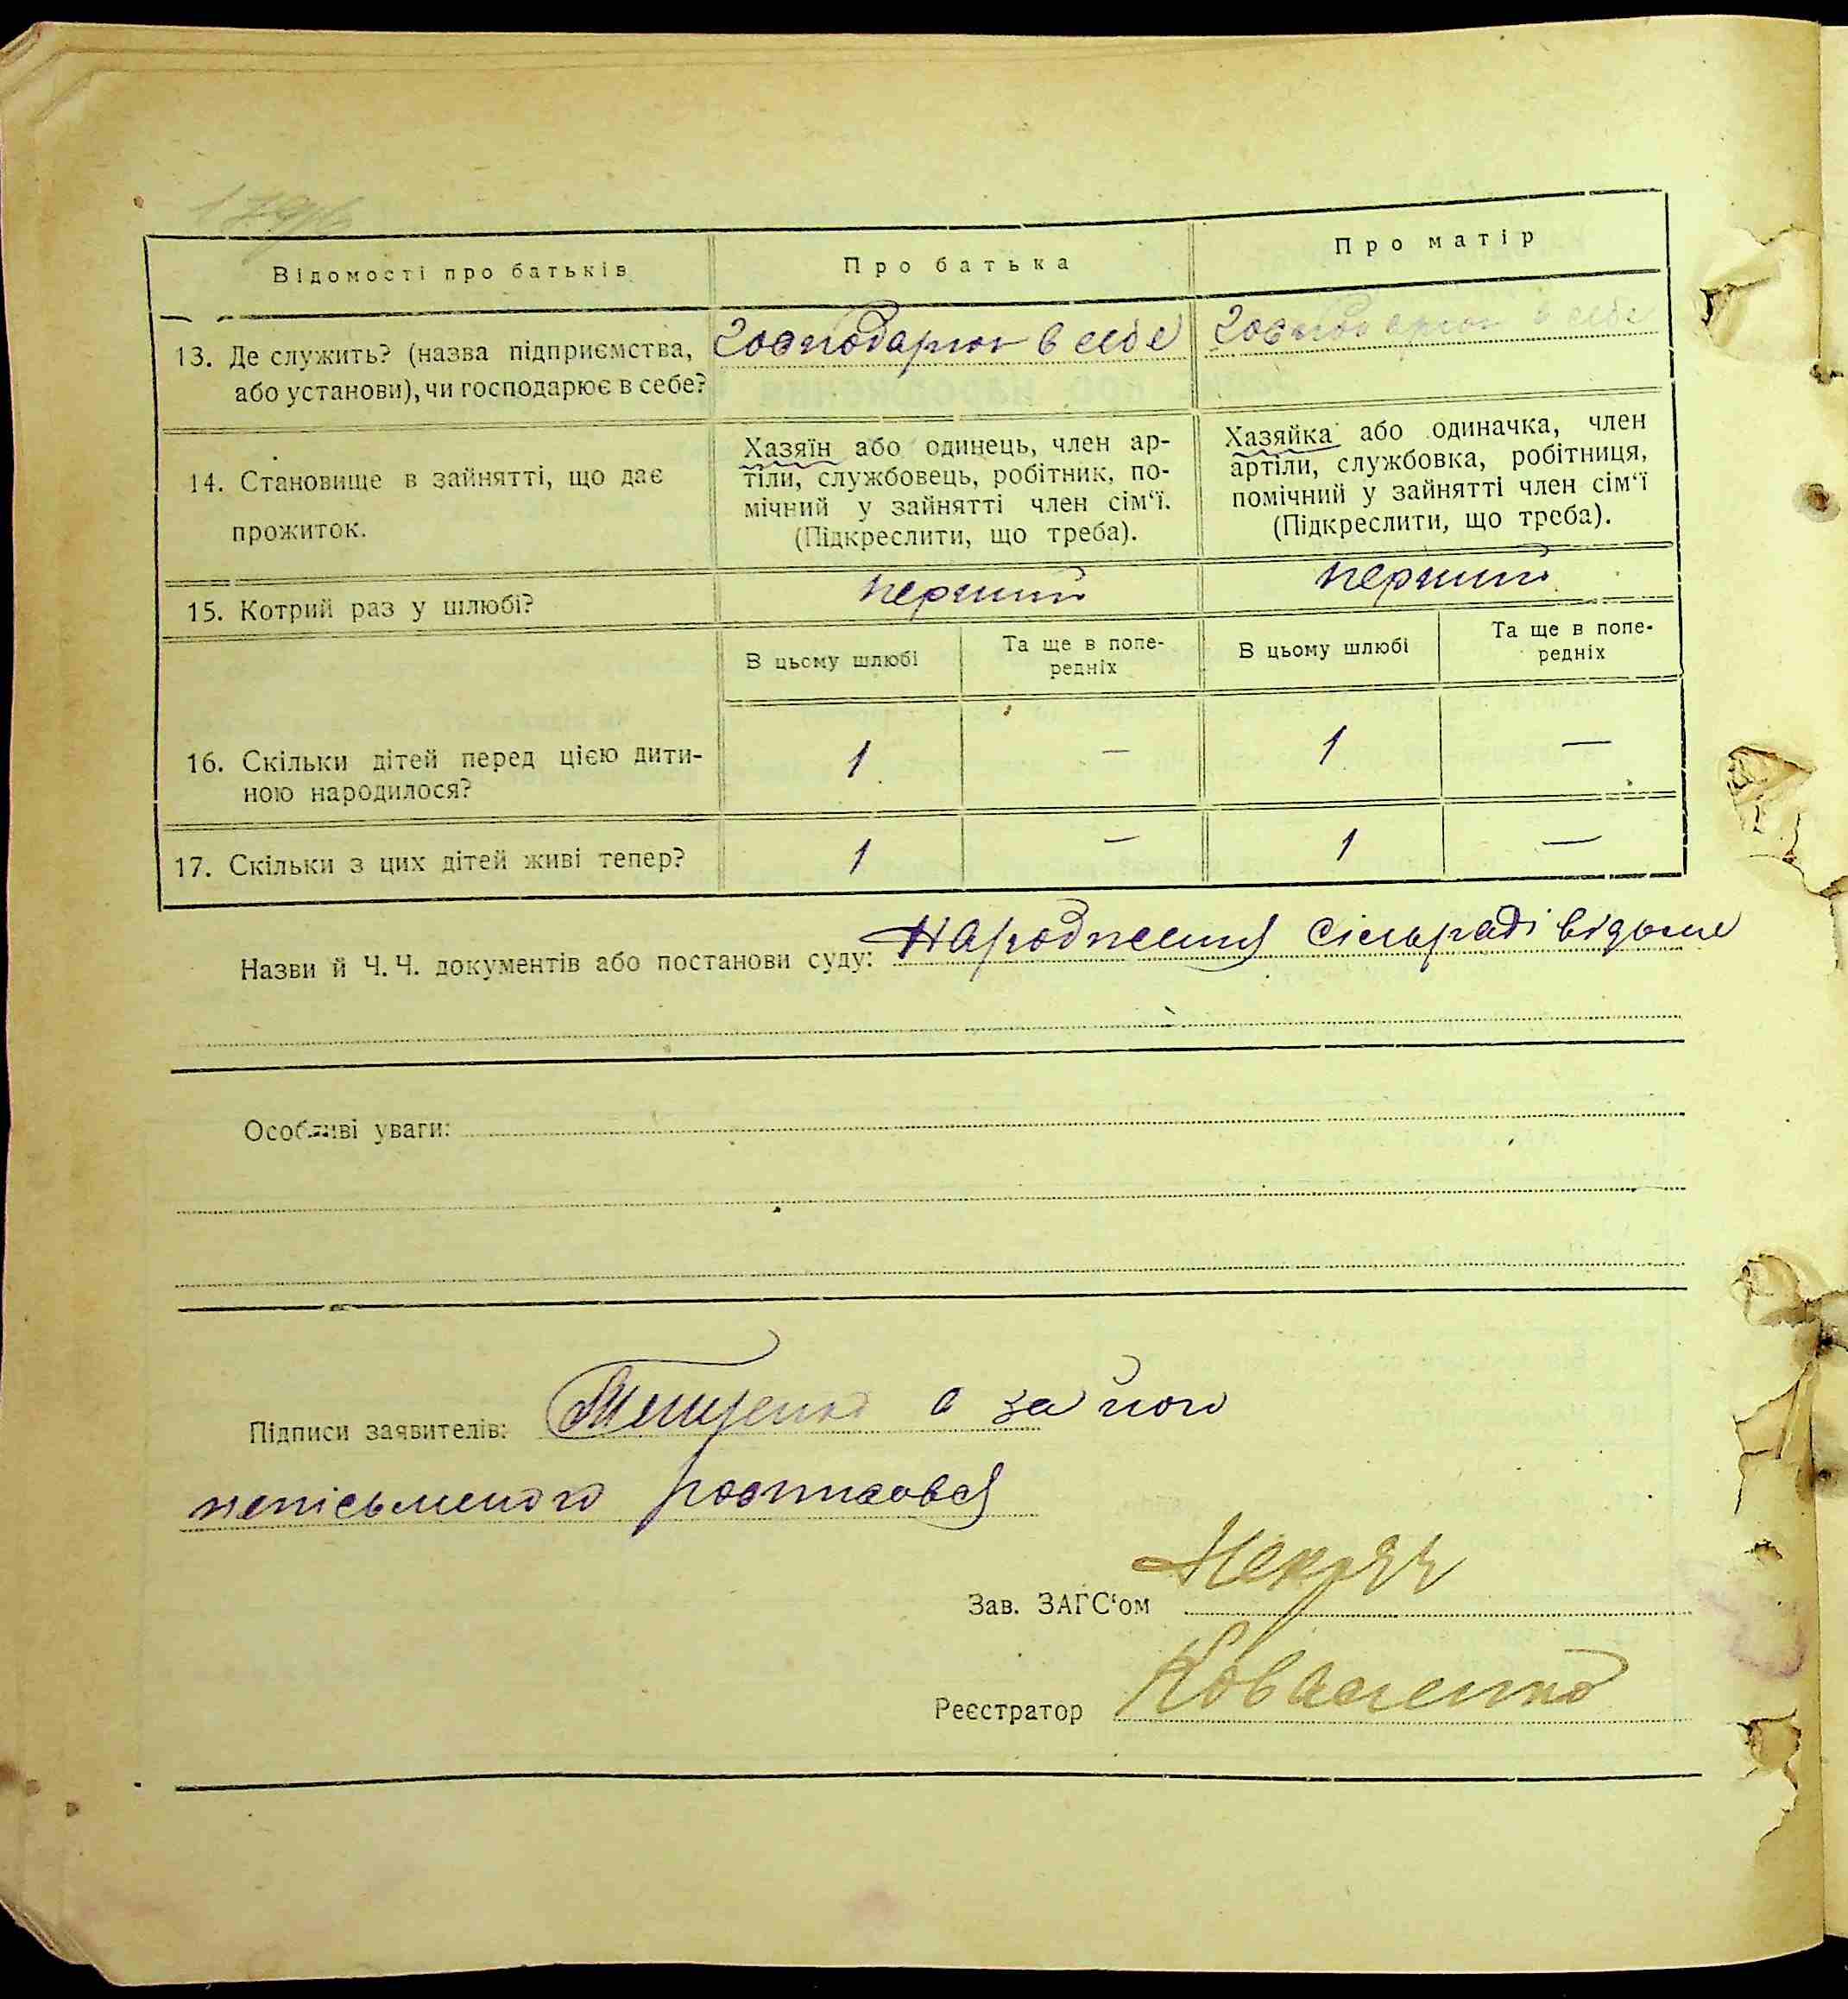 Відомості про батьків
Про батька
Про матір
13. Де служить? (назва підприємства, або установи), чи господарює в себе?
господарює в себе
господарює в себе
14. Становище в зайнятті, що дає прожиток.
Хазяїн або одинець, член ар-
тіли, службовець, робітник, по-
мічний у зайнятті член сім‘ї.
(Підкреслити, що треба).
Хазяйка або одиначка, член
артіли, службовка, робітниця,
помічний у зайнятті член сім‘ї
(Підкреслити, що треба).
15. Котрий раз у шлюбі?
перший
перший
В цьому шлюбі
Та ще в попе-
редніх
В цьому шлюбі
Та ще в попе-
редніх
16. Скільки дітей перед цією дити-
ною народилося?
1 — 1 —
17. Скільки з цих дітей живі тепер?
1 — 1 —
Назви й Ч. Ч. документів або постанови суду: Народження сільраді відоме
Особливі уваги:
Підписи заявителів: а за його
неписьменого росписався
Зав. ЗАГС‘ом
Реєстратор Коваленко